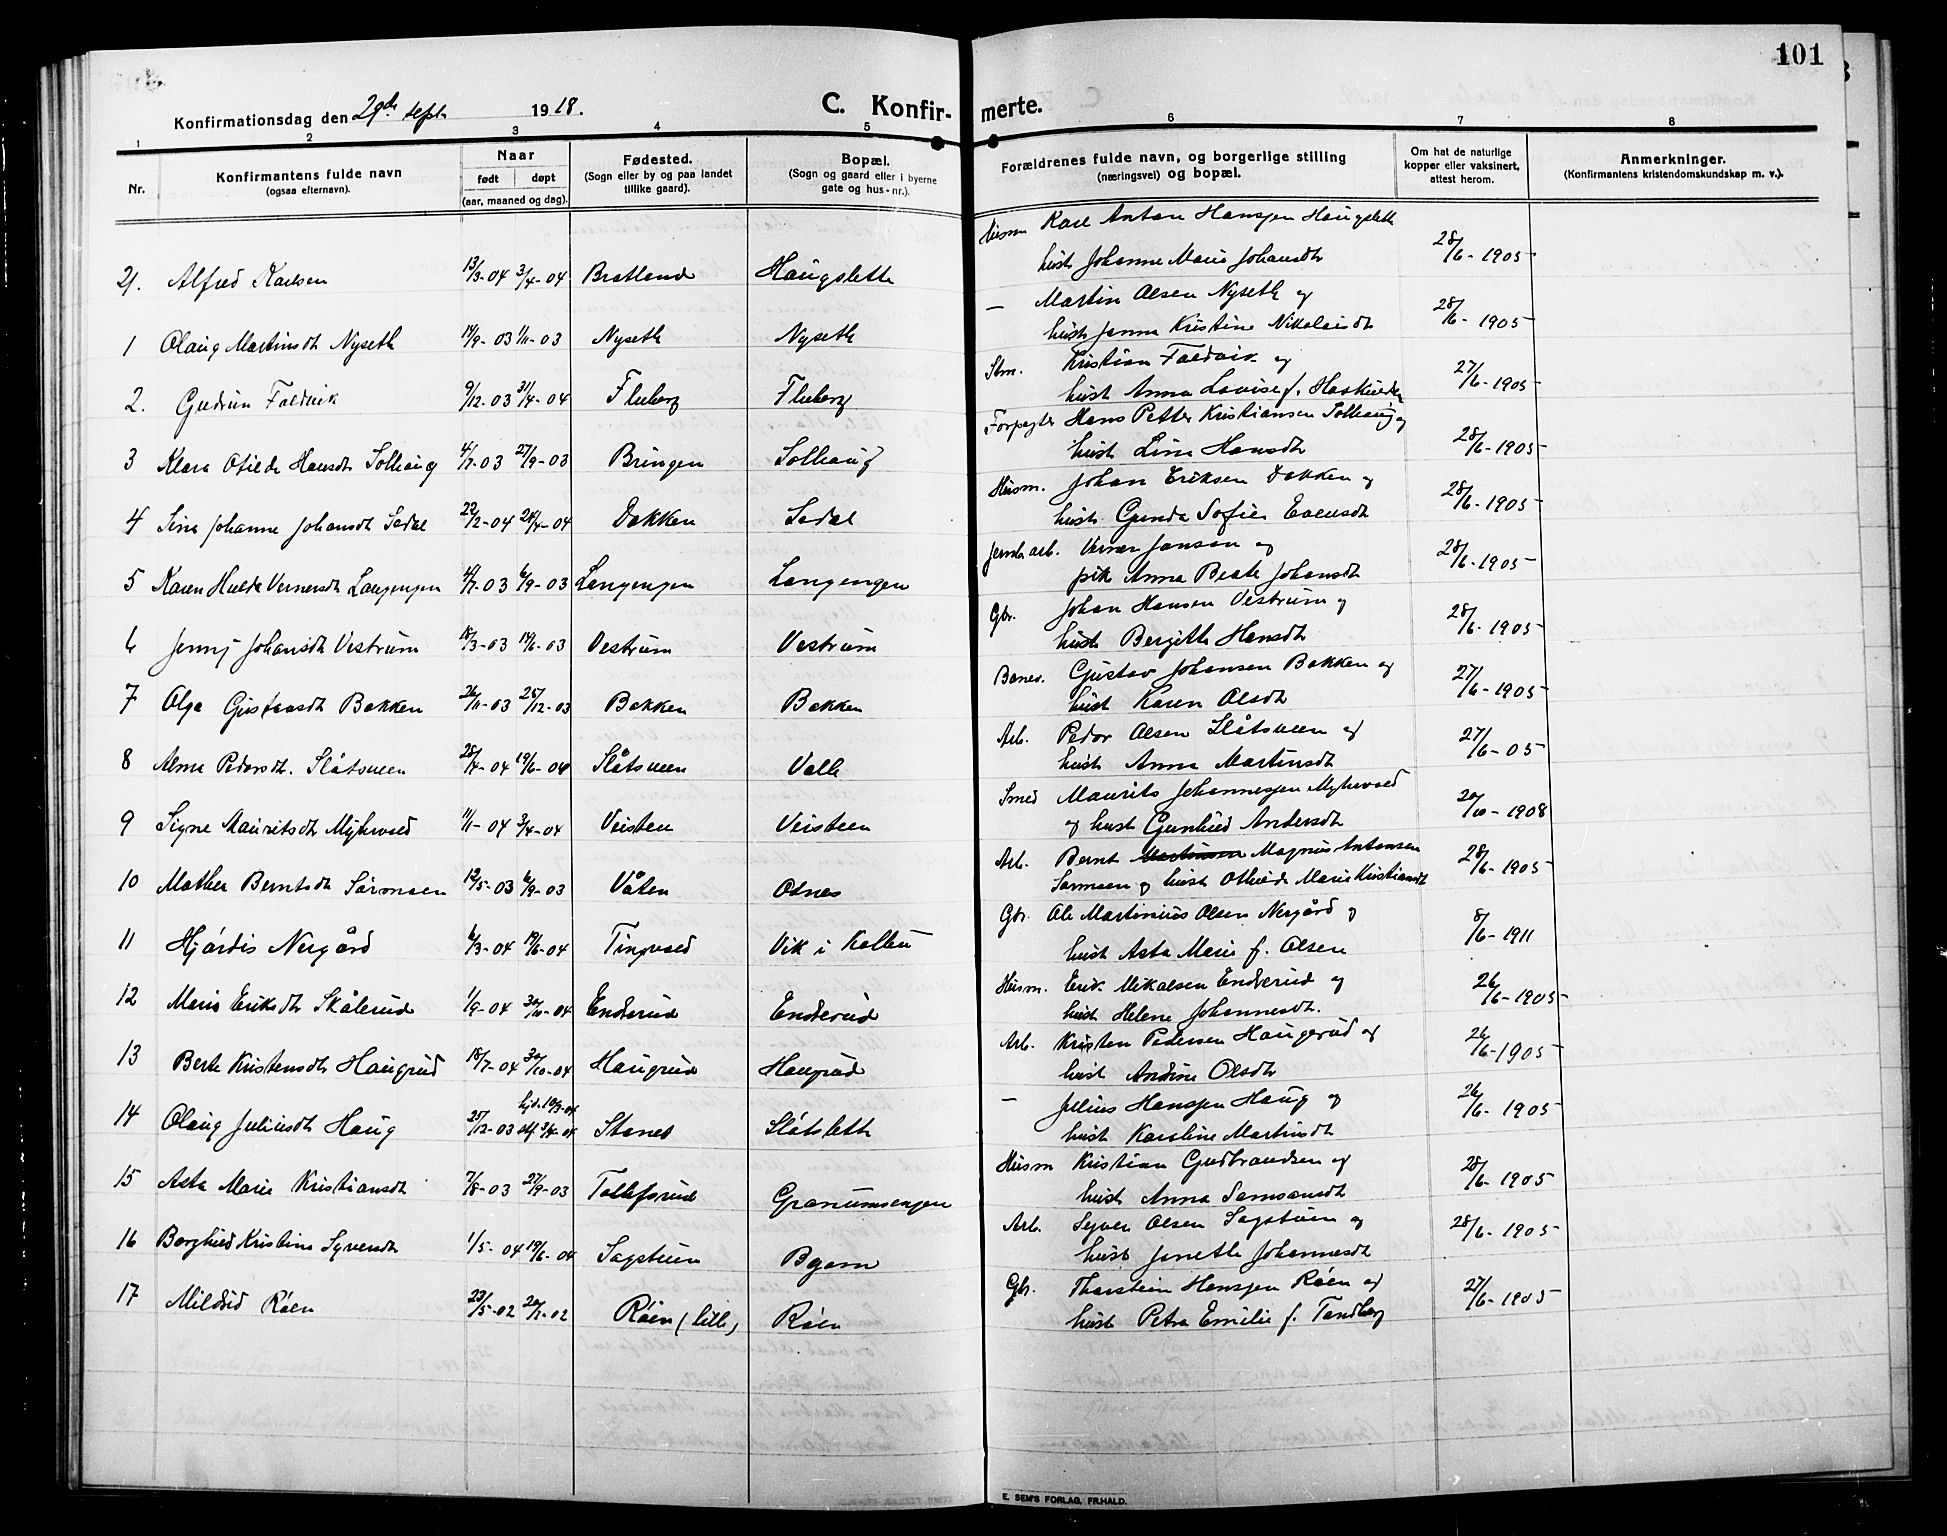 101
Konfirmationsdag den 29de sept. 1918.
C. Konfir- merte.
1 2 3 4 5 6 7 8
Nr.
Konfirmantens fulde navn
(ogsaa efternavn).
Naar
født døpt
(aar, maaned og dag).
Fødested.
(Sogn eller by og paa landet
tillike gaard).
Bopæl.
(Sogn og gaard eller i byerne
gate og hus-nr.).
Forældrenes fulde navn, og borgerlige stilling
(næringsvei) og bopæl.
Om hat de naturlige
kopper eller vaksinert,
attest herom.
Anmerkninger.
(Konfirmantens kristendomskundskap m. v.).
Husm Karl Anton Hansen Haugslett
hust Johanne Marie Johansdt 28/6-1905
21. Alfred Karlsen 13/3-04 3/4-04 Bratland Haugslett
— Martin Olsen Nyseth og
hust Janna Kristine Nikolaisdt 28/6-1905
1 Olaug Martinsdt Nyseth 14/9-03 1/11-03 Nyseth Nyseth
Stm. Kristian Foldvik og
hust Anna Lovise f. 27/6-1905
2. Gudrun Foldvik 9/12-03 31/4-04 Fluberg Fluberg
Forpagter Hans Petter Kristiansen Solhaug og
hust Lina Hansdt 28/6-1905
3 Klara Otilde Hansdt Solhaug 4/7-03 27/9-03 Bringen Solhaug
Husm. Johan Eriksen Dokken og
hust. Gunda Sofie Evensdt 28/6-1905
4 Sina Johanne Johansdt Sedal 22/2-04 24/4-04 Dokken Sedal
Jernb arb. Verner Janson og
pik Anna Beate Johansdt 28/6-1905
5 Karen Hulda Vernersdt Langengen 6/9-03 Langengen Langengen
Gbr. Johan Hansen Vestrum og
hust Bergitte Hansdt 28/6-1905
6 Jenny Johansdt Vestrum 18/3-03 14/6-03 Vestrum Vestrum
Banev. Gustav Johansen Bakken og
hust Karen Olsdt 27/6-1905
7 Olga Gustavsdt Bakken 26/11-03 25/12-03 Bakken Bakken
Arb. Peder Olsen Slåtsveen og
hust Anna Martinsdt 27/6-05
8 Alma Pedersdt. Slåtsveen 28/4-04 19/6-04 Slåtsveen Valle
Smed Maurits Johannesen Myhrvold
og hust Gunhild Andersdt 20/10-1908
9 Signe Mauritsdt Myhrvold 1/1-04 3/4-04 Veisten Veisteen
Arb. Bernt Martinsen Magnus Antonsen
Sørmoen og hust Othilde Marie Kristiansdt 28/6-1905
10 Mathea Berntsdt Sørmoen 12/5-03 6/9-03 Våten Odnes
Gbr. Ole Martinius Olsen Nergård og
hust Asta Marie f. Olsen 8/6-1911
11 Hjørdis Nergård 6/3-04 19/6-04 Tingvold Vik i Kolbu
Husm. Erik Mikalsen Enderud og
hust Helene Johannesdt. 26/6-1905
12 Marie Eriksdt Skålerud 1/9-04 30/10-04 Enderud Enderud
Arb. Kristen Pedersen Haugerud og
hust Andine Olsdt 26/6-1905
13 Berte Kristensdt Haugrud 18/7-04 30/10-04 Haugrud Haugrud
— Julius Hansen Haug og
hust Karoline Martinsdt 26/6-1905
hjd. 10/3-04
14 Olaug Juliusdt Haug 25/12-03 stf 3/4-04 Stenes Slåtslett
Husm Kristian Gudbrandsen og
hust Anna Samsonsdt 28/6-1905
15 Asta Marie Kristiansdt 7/8-03 27/9-03 Tollefsrud Granumsengen
Arb. Syver Olsen Sagstuen og
hust Janette Johannesdt 28/6-1905
16 Borghild Kristine Syversdt 1/5-04 19/6-04 Sagstuen
Gbr. Thorstein Hansen Røen og
hust Petra Emilie f. Tandberg 27/6-1905
17 Mildrid Røen 23/5-02 20/7-02 Røen (lille) Røen
E. SEM'S FORLAG, FR.HALD.